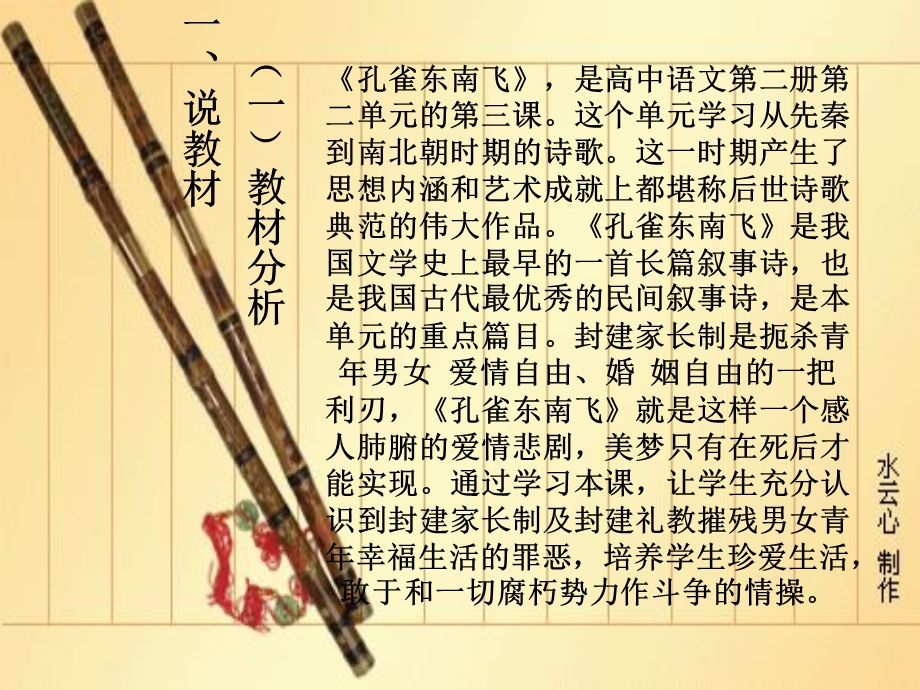 一、说教材
（一）教材分析
《孔雀东南飞》，是高中语文第二册第
二单元的第三课。这个单元学习从先秦
到南北朝时期的诗歌。这一时期产生了
思想内涵和艺术成就上都堪称后世诗歌
典范的伟大作品。《孔雀东南飞》是我
国文学史上最早的一首长篇叙事诗，也
是我国古代最优秀的民间叙事诗，是本
单元的重点篇目。封建家长制是扼杀青
年男女 爱情自由、婚 姻自由的一把
利刃，《孔雀东南飞》就是这样一个感
人肺腑的爱情悲剧，美梦只有在死后才
能实现。通过学习本课，让学生充分认
识到封建家长制及封建礼教摧残男女青
年幸福生活的罪恶，培养学生珍爱生活，
敢于和一切腐朽势力作斗争的情操。
水云心 制作